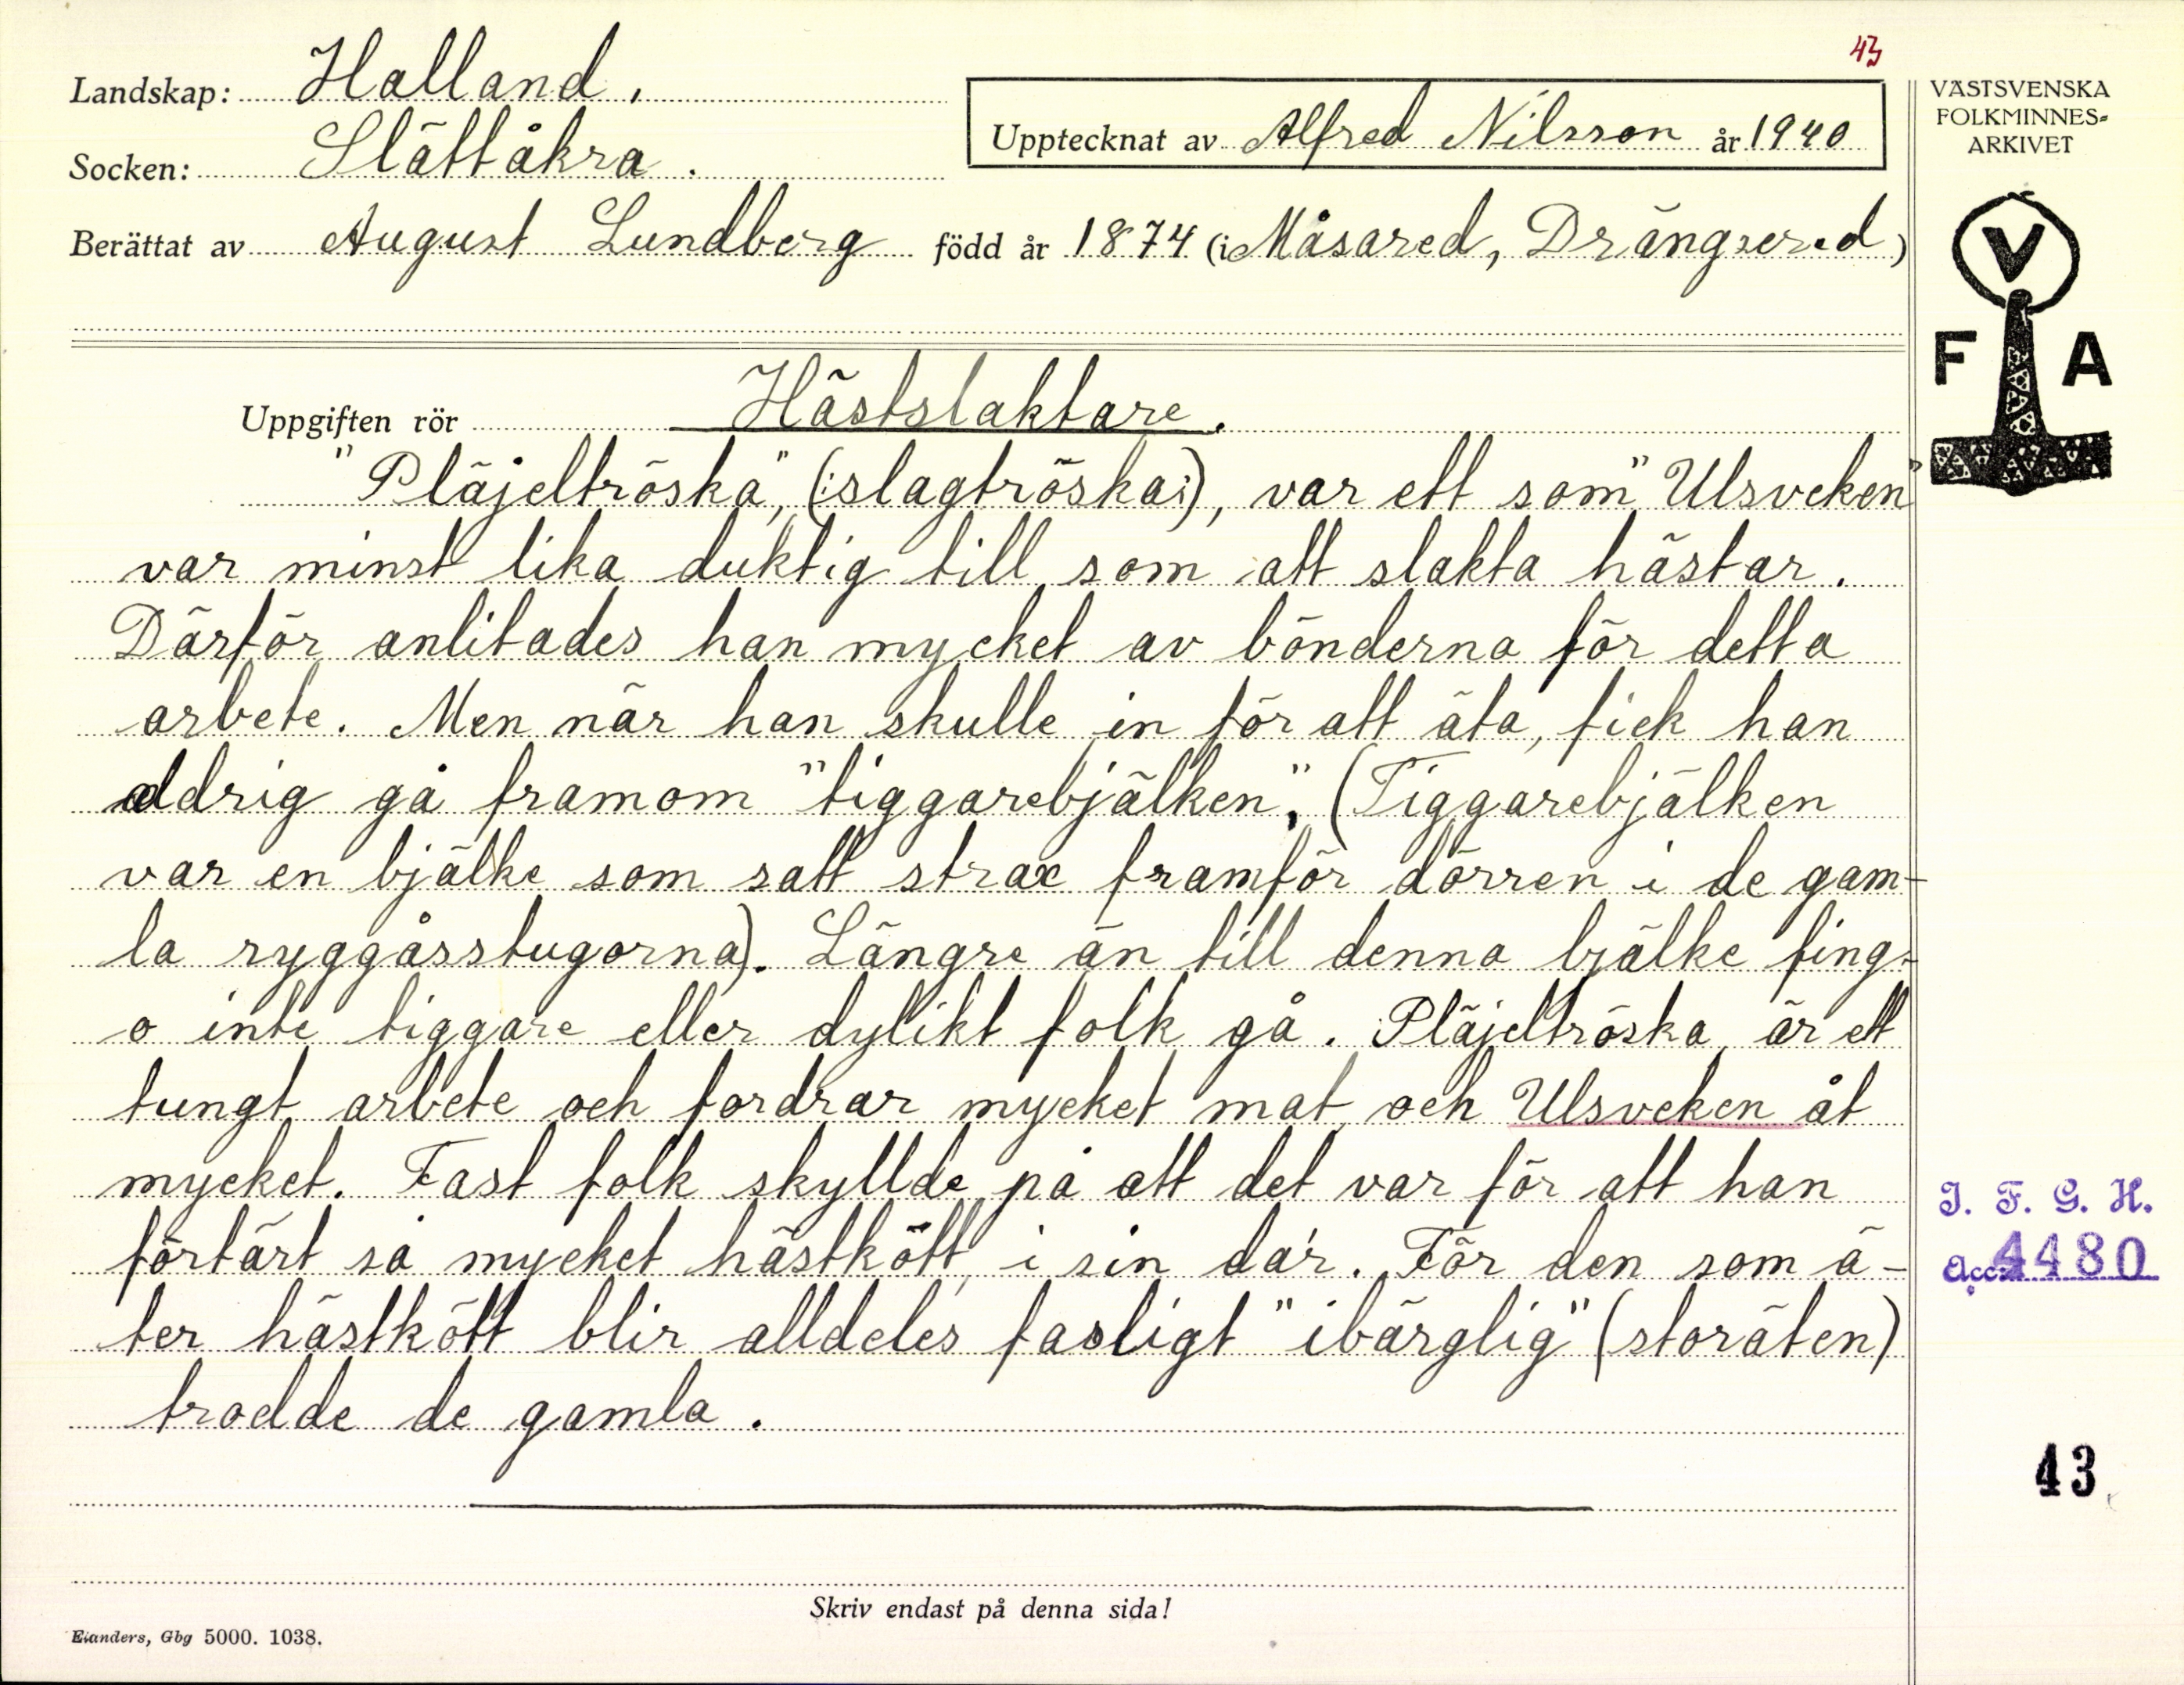 43
Landskap: Halland.
Socken: Slättåkra.
Upptecknat av Alfred Nilsson år 1940
Berättat av August Lundberg född år 1874 (i Måsared, Drängsered)
VÄSTSVENSKA
FOLKMINNES=
ARKIVET
V
F A
Uppgiften rör Hästslaktare.
"Pläjeltröska", (:slagtröska:), var ett som "Ulsveken"
var minst lika duktig till, som att slakta hästar.
Därför anlitades han mycket av bönderna för detta
arbete. Men när han skulle in för att äta, fick han
aldrig gå framom "tiggarebjälken", (Tiggarebjälken
var en bjälke som satt strax framför dörren i de gam-
la ryggåsstugorna). Längre än till denna bjälke fing-
o inte tiggare eller dylikt folk gå. Pläjeltröska, är ett
tungt arbete och fordrar mycket mat, och Ulsveken åt
mycket. Fast folk skyllde på att det var för att han
förtärt så mycket hästkött, i sin da'r. För den som ä-
ter hästkött blir alldeles fasligt "ibärglig" (storäten)
trodde de gamla.
I. F. G. H.
Acc. 4480
43
Skriv endast på denna sida!
Elanders, Gbg 5000. 1038.